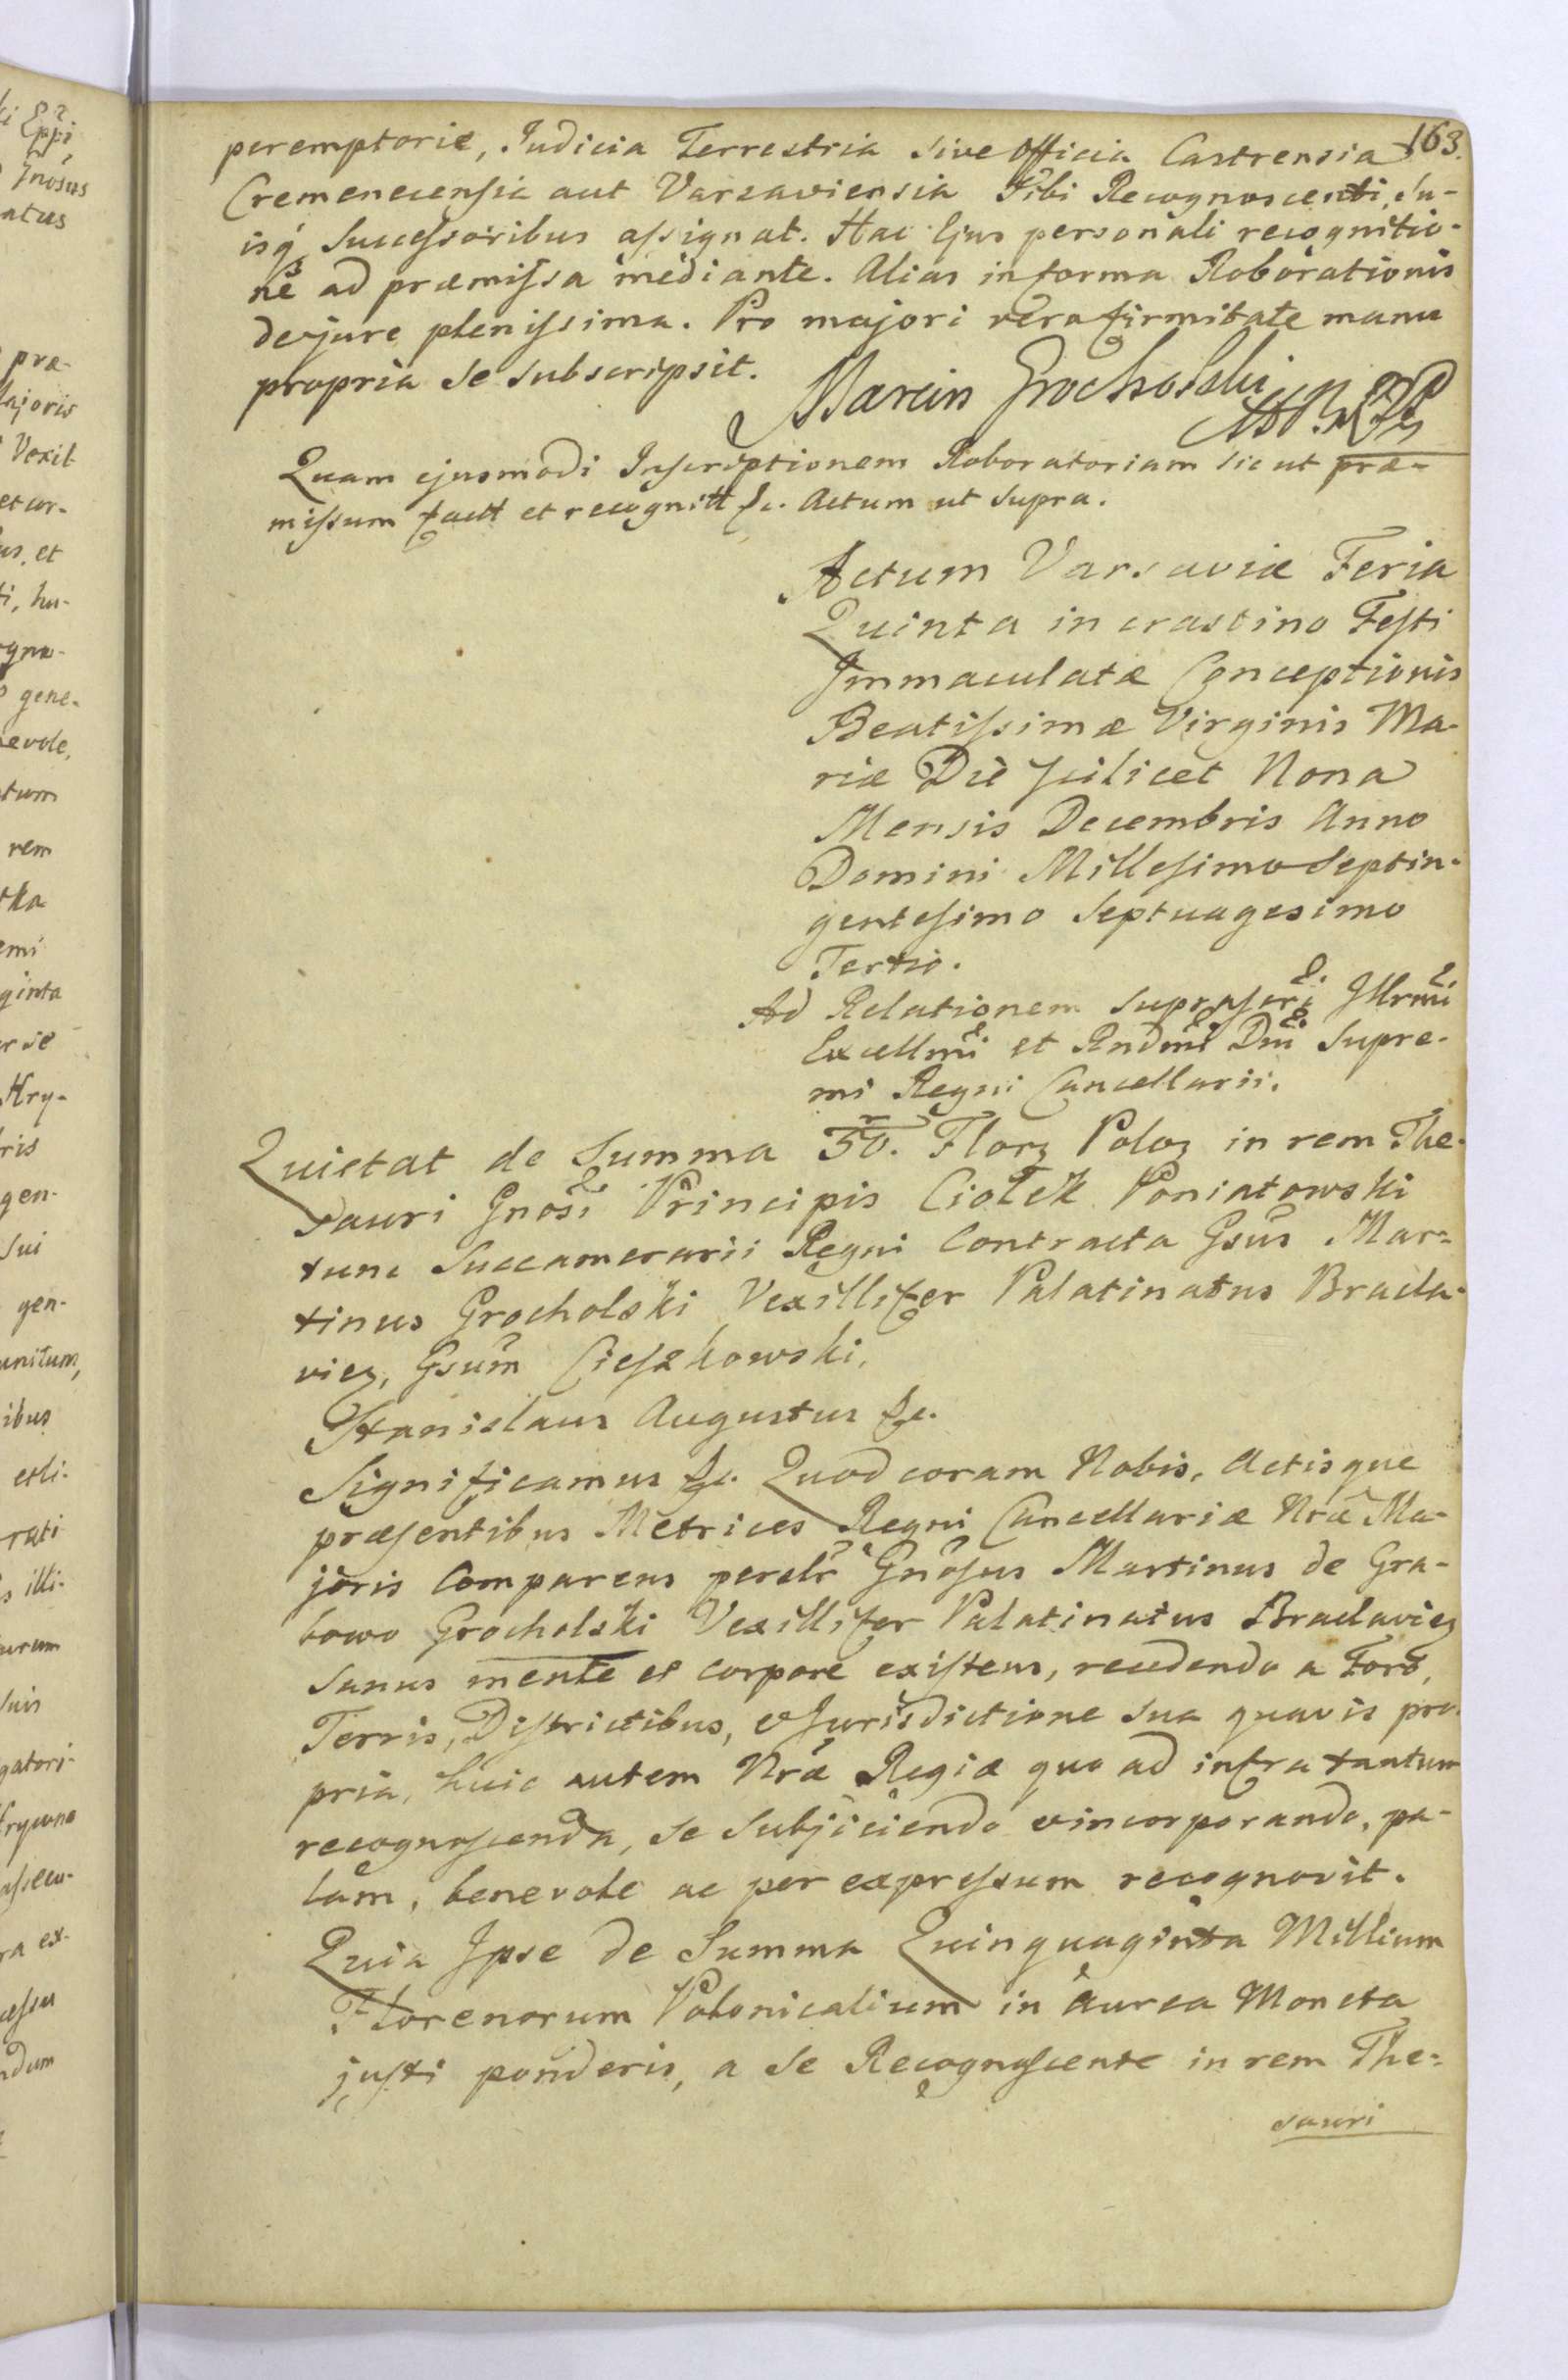 163.
peremptorie, Judicia Terrestria sive Officia Castrensia
Cremenecensia aut Varsaviensia Sibi Recognoscenti, Su-
isq́ Successoribus assignat. Hac Ejus personali recognitio-
ne ad præmissa mediante. Alias in forma Roborationis
de jure plenissima. Pro majori vero firmitate manu
propria se subscripsit. Marcin Grocholski
Quam ejusmodi Inscriptionem Roboratoriam sic ut præ-
missum factt et recognitt &c. Actum ut supra.
Actum Varsaviæ Feria
Quinta in crastino Festi
Immaculatæ Conceptionis
Beatissimæ Virginis Ma-
riæ Die scilicet Nona
Mensis Decembris Anno
Domini Millesimo Septin-
gentesimo Septuagesimo
Tertio.
Ad Relationem suprascri Illrmi
Excellmi et Rndmi Dni Supre-
mi Regni Cancellarii.
Quietat de Summa 50. Florz Poloz in rem The-
sauri Gnosi Principis Ciołek Poniatowski
tunc Succamerarii Regni Contracta Gsus Mar-
tinus Grocholski Vexillifer Palatinatus Bracla-
viez, Gsum Cieszkowski.
Stanislaus Augustus &c.
Significamus &c. Quod coram Nobis, Actisque
præsentibus Metrices Regni Cancellariæ Nræ Ma-
joris Comparens persolr Gnosus Martinus de Gra-
bowo Grocholski Vexillifer Palatinatus Braclaviez
sanus mente et corpore existens, recedendo a Foro,
Terris, Districtibus, et Jurisdictione sua quavis pro-
pria, huic autem Nræ Regiæ quo ad infra tantum
recognoscenda, se subjiciendo et incorporando, pa-
lam, benevole ac per expressum recognovit.
Quia Ipse de Summa Quinquaginta Millium
Florenorum Polonicalium in aurea Moneta
justi ponderis, a se Recognoscente in rem The-
sauri